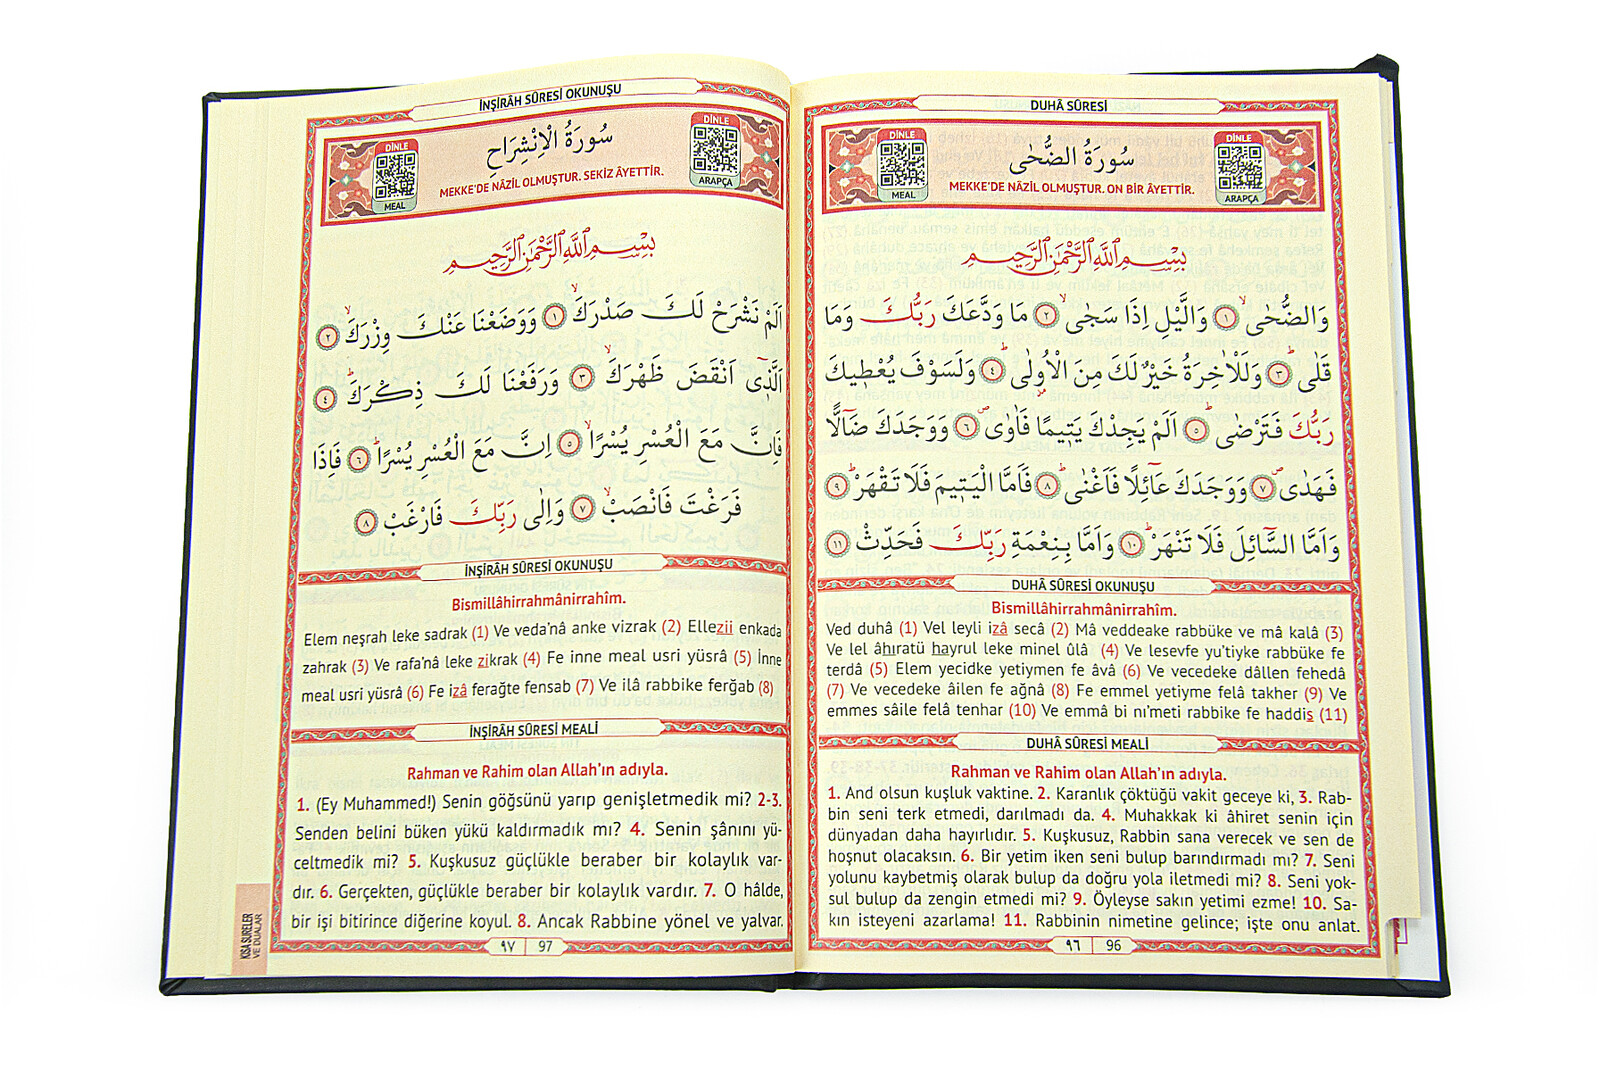 DUHÂ SÛRESİ
DİNLE
MEAL
سُورَةُ الضُّحٰى
MEKKE'DE NÂZİL OLMUŞTUR. ON BİR ÂYETTİR.
DİNLE
ARAPÇA
بِسْمِ اللّٰهِ الرَّحْمٰنِ الرَّحِيمِ
وَالضُّحٰىۙ ﴿١﴾ وَالَّيْلِ اِذَا سَجٰىۙ ﴿٢﴾ مَا وَدَّعَكَ رَبُّكَ وَمَا
قَلٰىۜ ﴿٣﴾ وَلَلْاٰخِرَةُ خَيْرٌ لَكَ مِنَ الْاُولٰىۜ ﴿٤﴾ وَلَسَوْفَ يُعْطٖيكَ
رَبُّكَ فَتَرْضٰىۜ ﴿٥﴾ اَلَمْ يَجِدْكَ يَتٖيمًا فَاٰوٰىۖ ﴿٦﴾ وَوَجَدَكَ ضَٓالًّا
فَهَدٰىۖ ﴿٧﴾ وَوَجَدَكَ عَٓائِلًا فَاَغْنٰىۜ ﴿٨﴾ فَاَمَّا الْيَتٖيمَ فَلَا تَقْهَرْۜ ﴿٩﴾
وَاَمَّا السَّٓائِلَ فَلَا تَنْهَرْۜ ﴿١٠﴾ وَاَمَّا بِنِعْمَةِ رَبِّكَ فَحَدِّثْ ﴿١١﴾
DUHÂ SÛRESİ OKUNUŞU
Bismillâhirrahmânirrahîm.
Ved duhâ (1) Vel leyli izâ secâ (2) Mâ veddeake rabbüke ve mâ kalâ (3)
Ve lel âhıratü hayrul leke minel ûlâ (4) Ve lesevfe yu'tiyke rabbüke fe
terdâ (5) Elem yecidke yetiymen fe âvâ (6) Ve vecedeke dâllen fehedâ
(7) Ve vecedeke âilen fe ağnâ (8) Fe emmel yetiyme felâ takher (9) Ve
emmes sâile felâ tenhar (10) Ve emmâ bi nı'meti rabbike fe haddis (11)
DUHÂ SÛRESİ MEALİ
Rahman ve Rahim olan Allah'ın adıyla.
1. And olsun kuşluk vaktine. 2. Karanlık çöktüğü vakit geceye ki, 3. Rab-
bin seni terk etmedi, darılmadı da. 4. Muhakkak ki âhiret senin için
dünyadan daha hayırlıdır. 5. Kuşkusuz, Rabbin sana verecek ve sen de
hoşnut olacaksın. 6. Bir yetim iken seni bulup barındırmadı mı? 7. Seni
yolunu kaybetmiş olarak bulup da doğru yola iletmedi mi? 8. Seni yok-
sul bulup da zengin etmedi mi? 9. Öyleyse sakın yetimi ezme! 10. Sa-
kın isteyeni azarlama! 11. Rabbinin nimetine gelince; işte onu anlat.
٩٦ 96
İNŞİRÂH SÛRESİ OKUNUŞU
DİNLE
MEAL
سُورَةُ الْاِنْشِرَاحِ
MEKKE'DE NÂZİL OLMUŞTUR. SEKİZ ÂYETTİR.
DİNLE
ARAPÇA
بِسْمِ اللّٰهِ الرَّحْمٰنِ الرَّحِيمِ
اَلَمْ نَشْرَحْ لَكَ صَدْرَكَۙ ﴿١﴾ وَوَضَعْنَا عَنْكَ وِزْرَكَۙ ﴿٢﴾
اَلَّذٖٓى اَنْقَضَ ظَهْرَكَۙ ﴿٣﴾ وَرَفَعْنَا لَكَ ذِكْرَكَۜ ﴿٤﴾
فَاِنَّ مَعَ الْعُسْرِ يُسْرًاۙ ﴿٥﴾ اِنَّ مَعَ الْعُسْرِ يُسْرًاۜ ﴿٦﴾ فَاِذَا
فَرَغْتَ فَانْصَبْۙ ﴿٧﴾ وَاِلٰى رَبِّكَ فَارْغَبْ ﴿٨﴾
İNŞİRÂH SÛRESİ OKUNUŞU
Bismillâhirrahmânirrahîm.
Elem neşrah leke sadrak (1) Ve veda'nâ anke vizrak (2) Ellezii enkada
zahrak (3) Ve rafa'nâ leke zikrak (4) Fe inne meal usri yüsrâ (5) İnne
meal usri yüsrâ (6) Fe izâ ferağte fensab (7) Ve ilâ rabbike ferğab (8)
İNŞİRÂH SÛRESİ MEALİ
Rahman ve Rahim olan Allah'ın adıyla.
1. (Ey Muhammed!) Senin göğsünü yarıp genişletmedik mi? 2-3.
Senden belini büken yükü kaldırmadık mı? 4. Senin şânını yü-
celtmedik mi? 5. Kuşkusuz güçlükle beraber bir kolaylık var-
dır. 6. Gerçekten, güçlükle beraber bir kolaylık vardır. 7. O hâlde,
bir işi bitirince diğerine koyul. 8. Ancak Rabbine yönel ve yalvar.
٩٧ 97
KISA SURELER
VE DUALAR